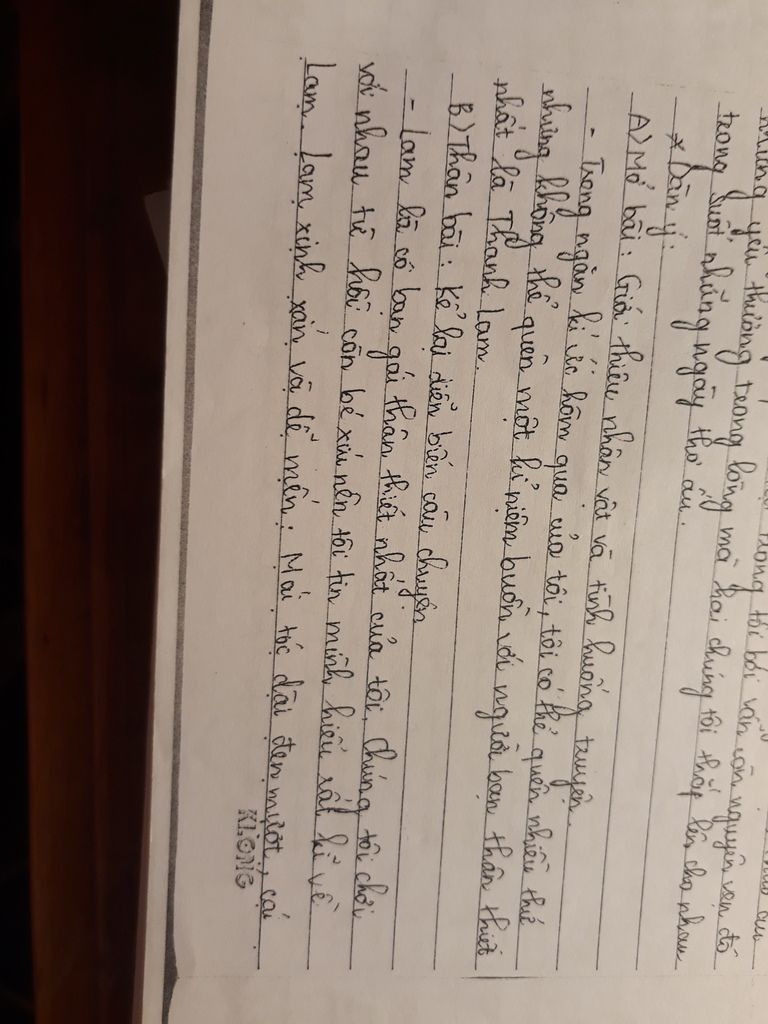 yêu thương trong lòng mà hai chúng tôi thắp lên cho nhau
trong suốt những ngày thơ ấu.
* Dàn ý:
A) Mở bài: Giới thiệu nhân vật và tình huống truyện.
- Trong ngăn kí ức hôm qua của tôi, tôi có thể quên nhiều thứ
nhưng không thể quên một kỉ niệm buồn với người bạn thân thiết
nhất là Thanh Lam.
B) Thân bài: Kể lại diễn biến câu chuyện
- Lam là cô bạn gái thân thiết nhất của tôi, chúng tôi chơi
với nhau từ hồi còn bé xíu nên tôi tin mình hiểu rất kĩ về
Lam. Lam xinh xắn và dễ mến; Mái tóc dài đen mượt, cái
KLONG